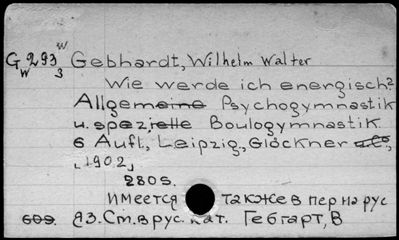 G 293 w Gebhardt, Wilhelm Walter
w 3
Wie werde ich energisch?
Allgemeine Psychogymnastik
u. spezielle Boulogymnastik
6 Aufl, Leipzig, Glöckner
[1902]
280S.
Имеется также в пер на рус
609. яз. См. в рус. кат. Гебгарт, В